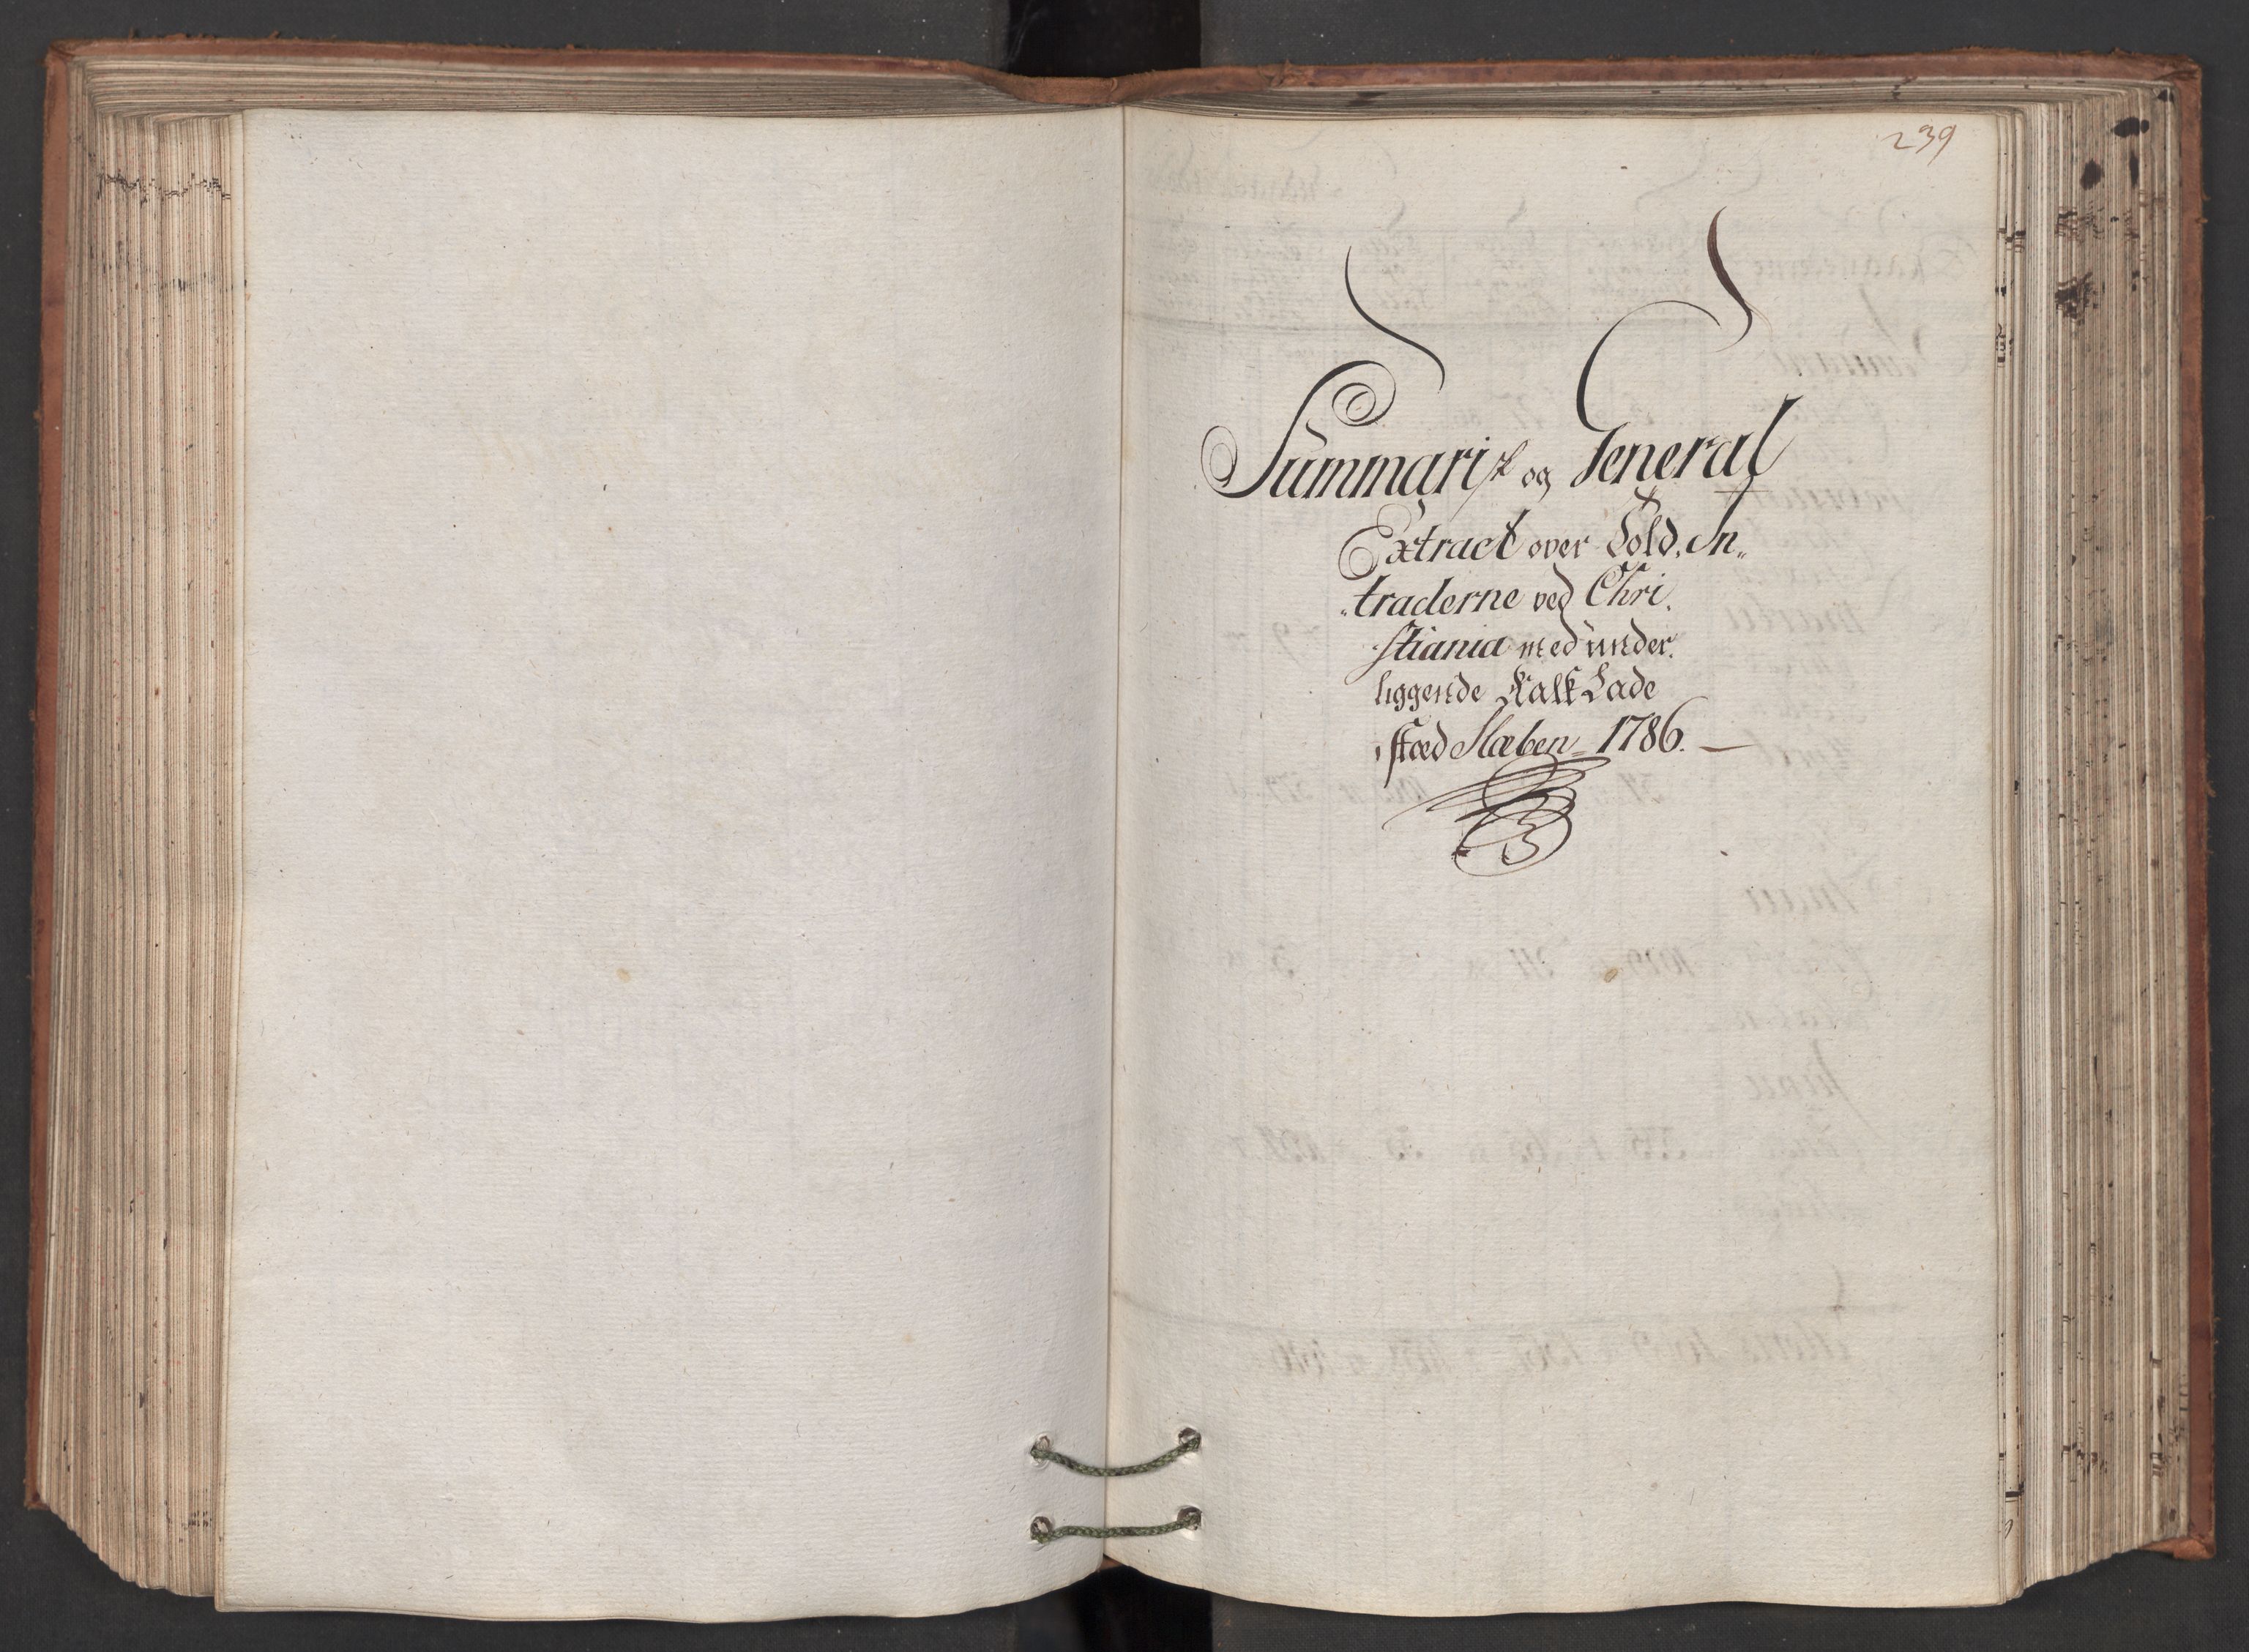 239
Summarisk og General
Extract over Told, In„
„traderne ved Chri,
stiania med under,
liggende Kalk Lade
stæd Slæben 1786.